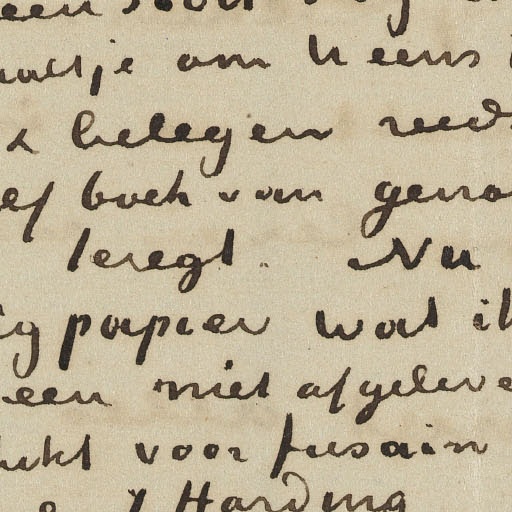 een soort
aatje om U eens
& belegen reeds
ef boek van geno
teregt. Nu
ig papier wat ik
een niet afgeleve
ukt voor fusain
Harding